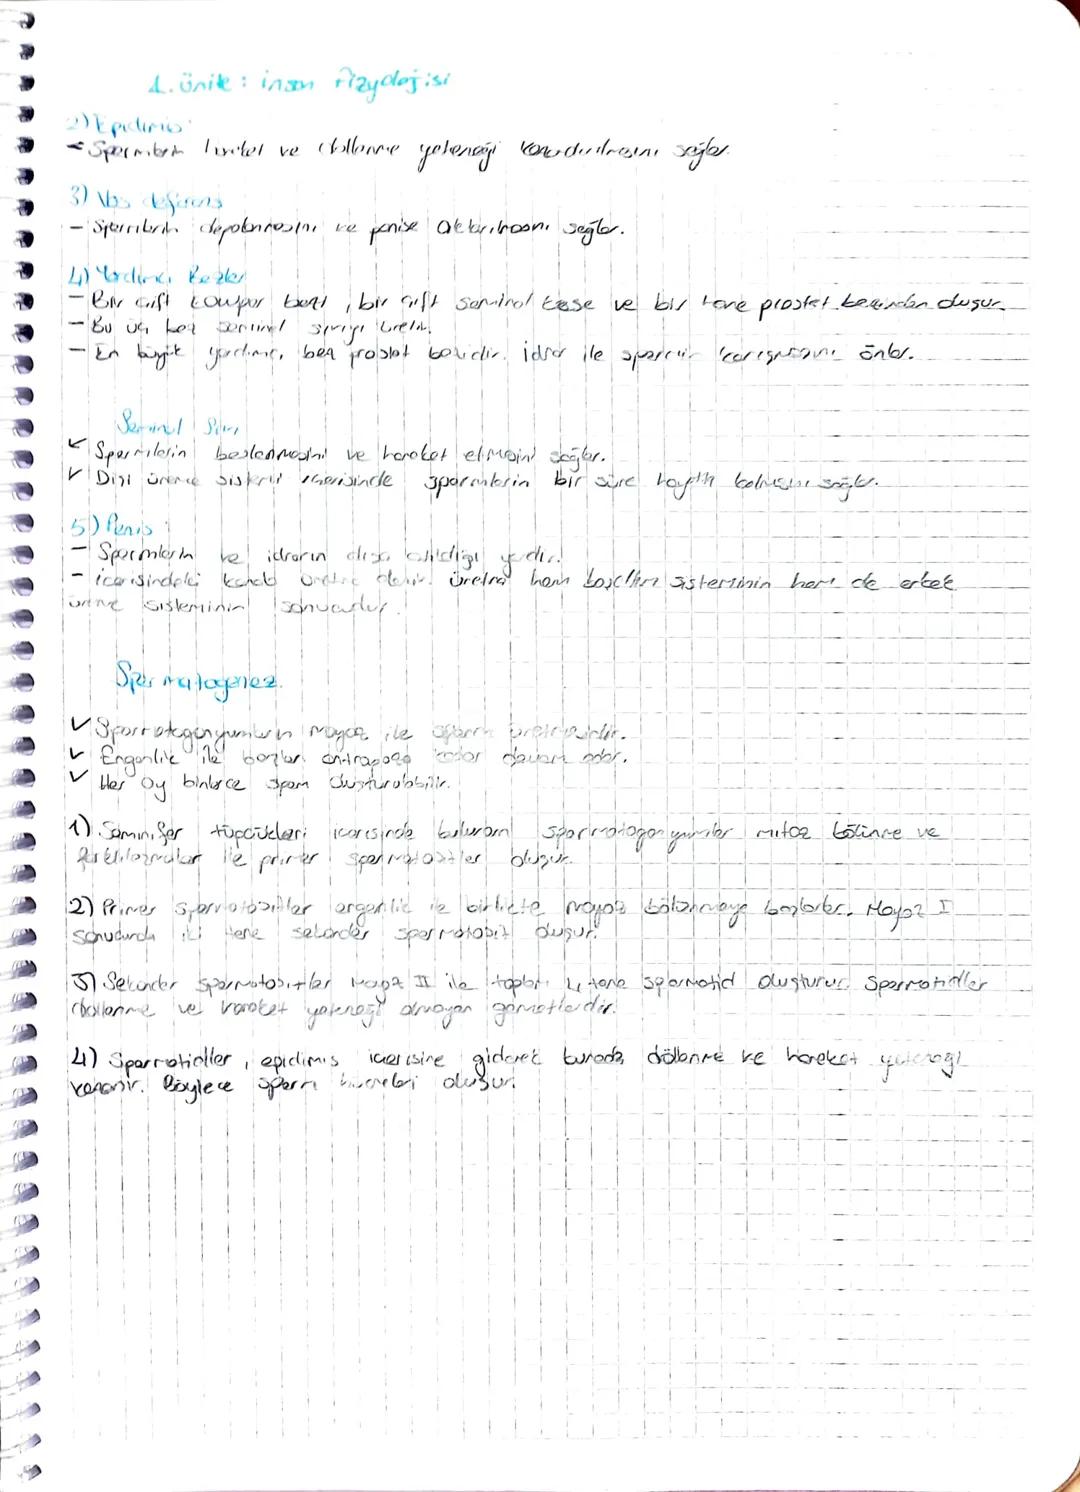 1. ünite: insan Fizyolojisi
2) Epidimis:
- Spermlerin hareket ve döllenme yeteneği kazandırılmasını sağlar.
3) Vas deferens
- Spermlerin depolanmasını ve penise aktarılmasını sağlar.
4) Yardımcı Bezler
- Bir çift cowper bezi, bir çift seminal kese ve bir tane prostat bezinden oluşur.
- Bu üç bez seminal sıvıyı üretir.
- En büyük yardımcı bez prostat bezidir. idrar ile spermin karışmasını önler.
Seminal Sıvı
✓ Spermlerin beslenmesini ve hareket etmesini sağlar.
✓ Dişi üreme sistemi içerisinde spermlerin bir süre hayatta kalmasını sağlar.
5) Penis:
- Spermlerin ve idrarın dışa atıldığı yerdir.
- içerisindeki kanala üretra denir. üretra hem boşaltım sisteminin hem de erkek
üreme sisteminin sonucudur.
Spermatogenez
✓ Spermatogonyumların mayoz ile sperm üretmesidir.
✓ Ergenlik ile başlar. antrapoza kadar devam eder.
✓ Her ay binlerce sperm oluşturulabilir.
1) Seminifer tüpçükleri içerisinde bulunan spermatogonyumlar mitoz bölünme ve
farklılaşmalar ile primer spermatositler oluşur.
2) Primer spermatositler ergenlik ile birlikte mayoz bölünmeye başlarlar. Mayoz I
sonucunda iki tane sekonder spermatosit oluşur.
3) Sekonder spermatositler mayoz II ile toplam 4 tane spermatid oluşturur. Spermatidler
döllenme ve hareket yeteneği olmayan gametlerdir.
4) Spermatidler, epidimis içerisine giderek burada döllenme ve hareket yeteneği
kazanır. Böylece sperm hücreleri oluşur.